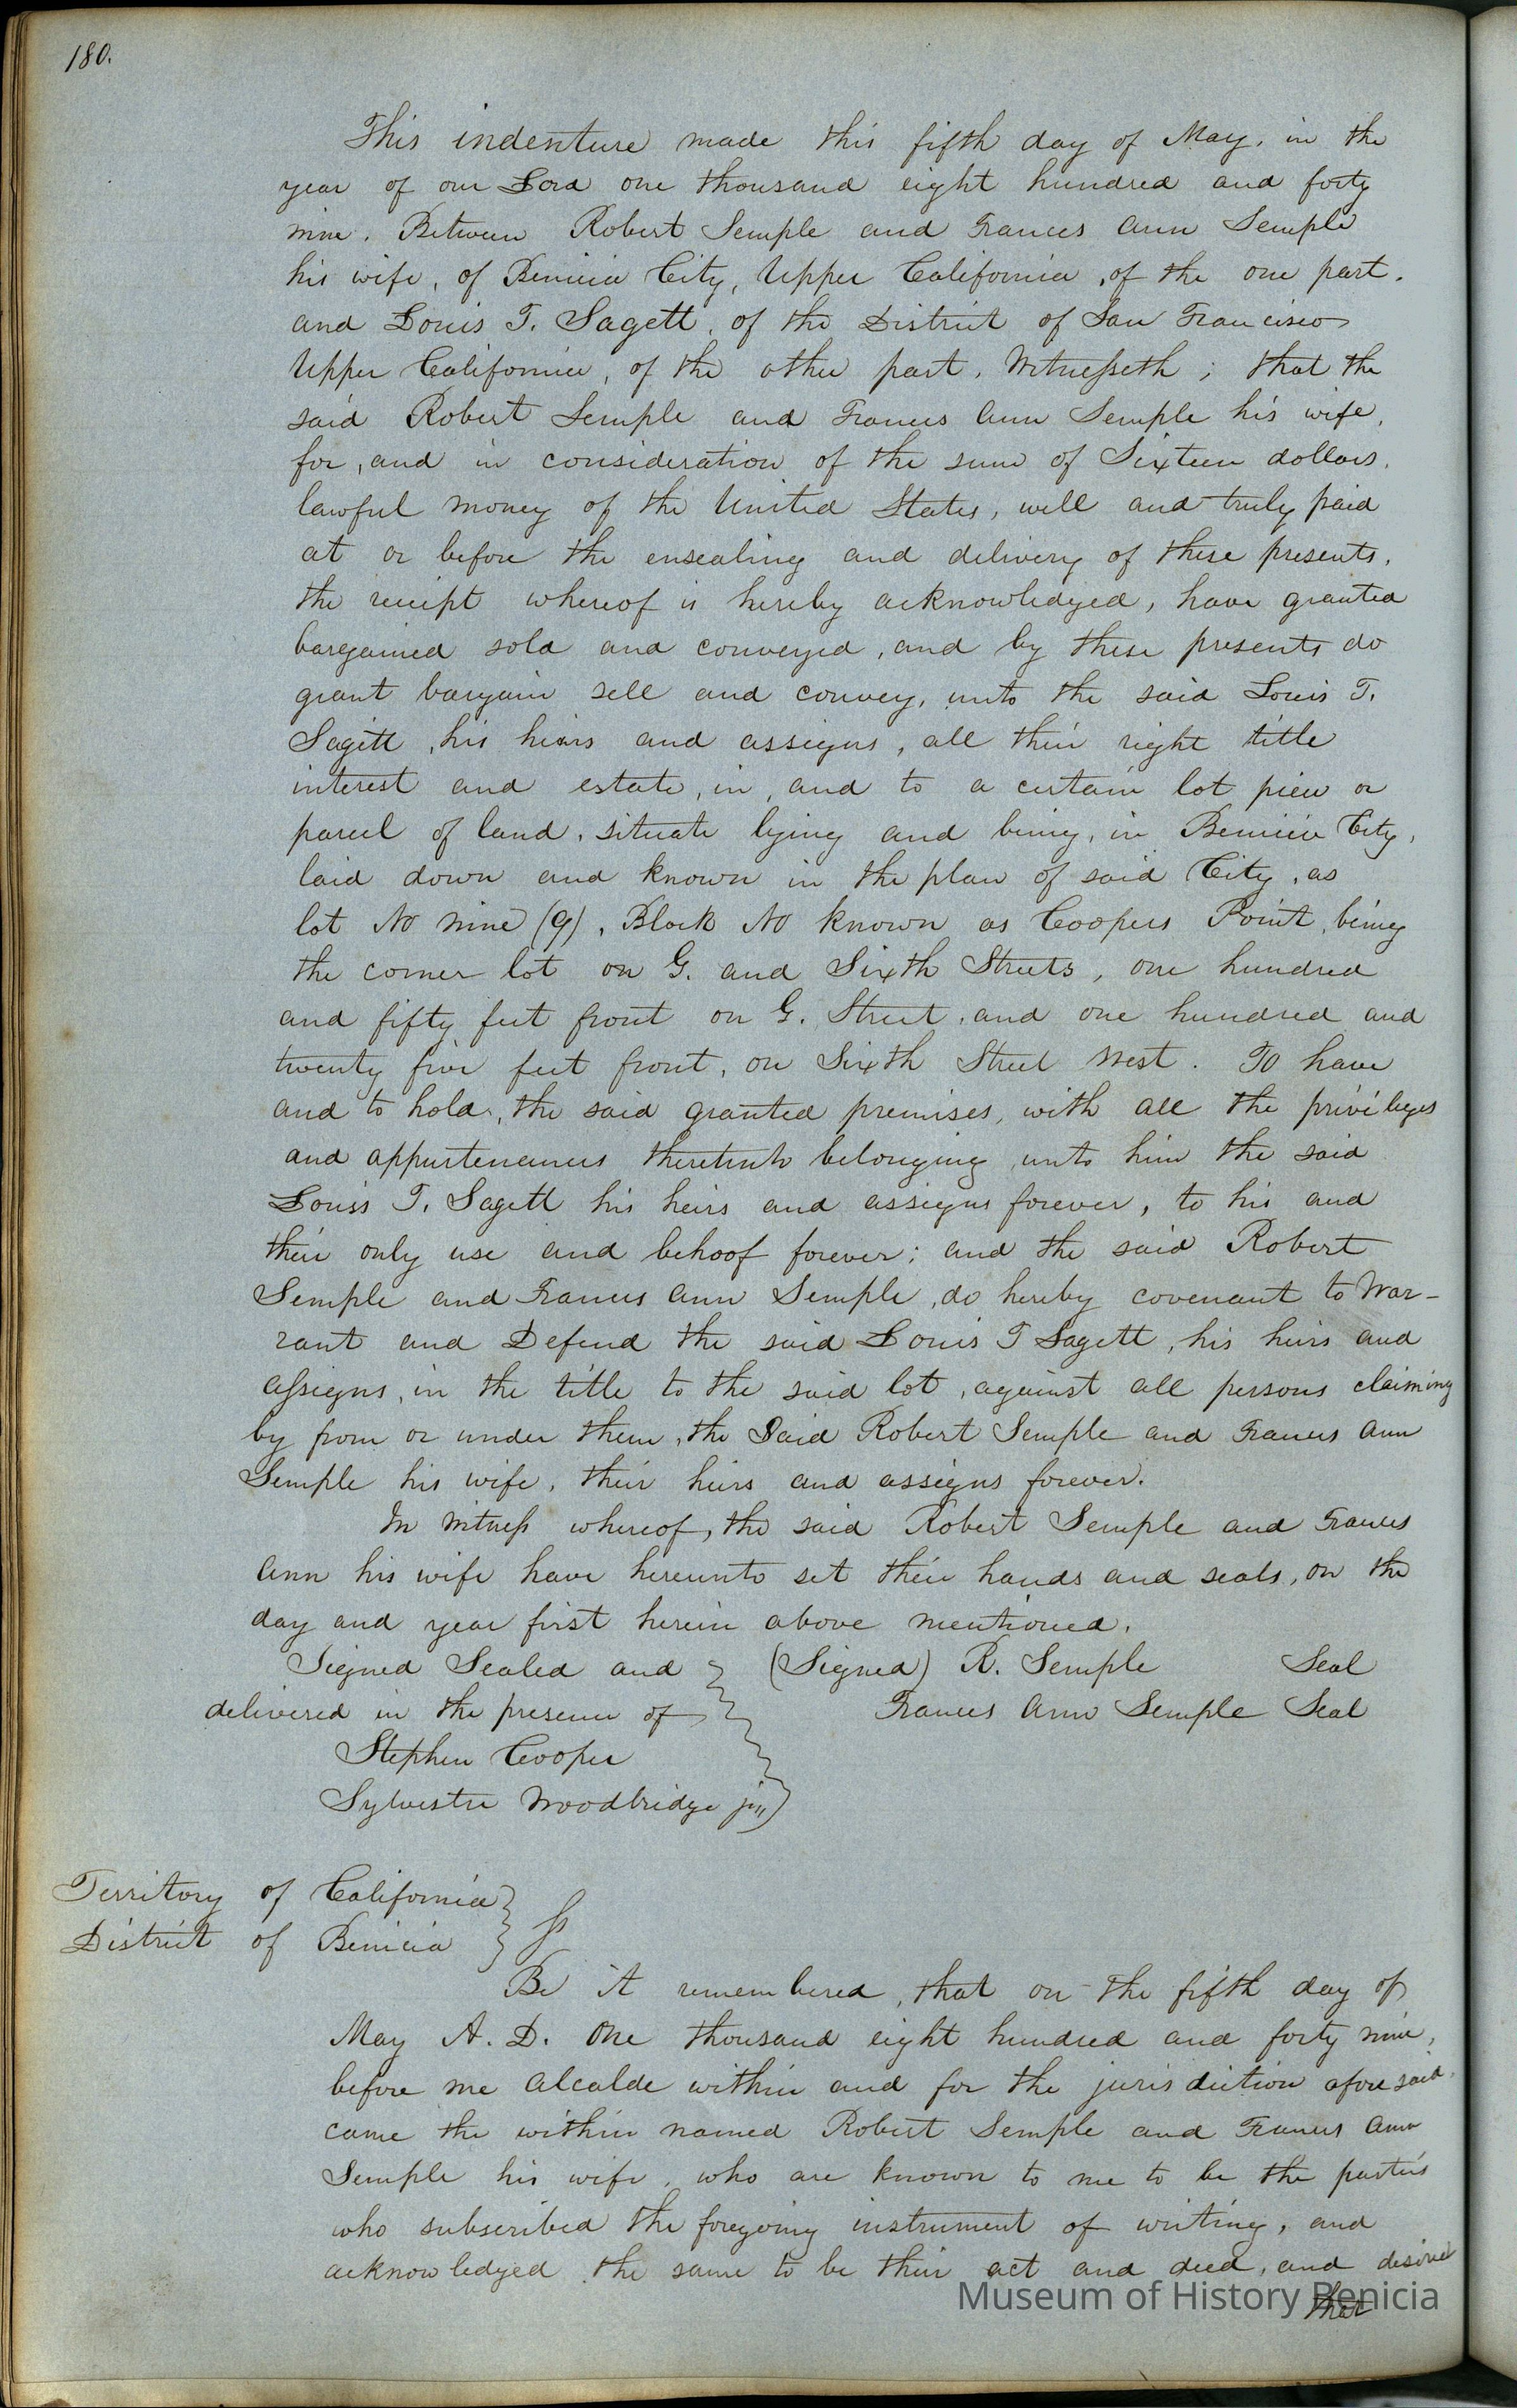 180.
This indenture made this fifth day of May, in the
year of our Lord one thousand eight hundred and forty
nine. Between Robert Semple and Frances Ann Semple
his wife, of Benicia City, Upper California, of the one part.
and Louis T. Sagett, of the District of San Francisco
Upper California, of the other part. Witnesseth; that the
said Robert Semple and Frances Ann Semple his wife,
for, and in consideration of the sum of Sixteen dollars.
lawful money of the United States, well and truly paid
at or before the ensealing and delivery of these presents,
the receipt whereof is hereby acknowledged, have granted
bargained sold and conveyed, and by these presents do
grant bargain sell and convey, unto the said Louis T.
Sagett, his heirs and assigns, all their right title
interest and estate, in, and to a certain lot piece or
parcel of land, situate lying and being, in Benicia City,
laid down and known in the plan of said City, as
lot No nine (9), Block No known as Coopers Point, being
the corner lot on G. and Sixth Streets, one hundred
and fifty feet front on G. Street, and one hundred and
twenty five feet front, on Sixth Street West. To have
and to hold, the said granted premises, with all the privileges
and appurtenances thereunto belonging, unto him the said
Louis T. Sagett his heirs and assigns forever, to his and
their only use and behoof forever; and the said Robert
Semple and Frances Ann Semple, do hereby covenant to War-
rant and Defend the said Louis T Sagett, his heirs and
assigns, in the title to the said lot, against all persons claiming
by from or under them, the Said Robert Semple and Frances Ann
Semple his wife, their heirs and assigns forever.
In witness whereof, the said Robert Semple and Frances
Ann his wife have hereunto set their hands and seals, on the
day and year first herein above mentioned.
Signed Sealed and (Signed) R. Semple Seal
delivered in the presence of Frances Ann Semple Seal
Stephen Cooper
Sylvester Woodbridge jr
Territory of California
District of Benicia ss
Be it remembered, that on the fifth day of
May A. D. One thousand eight hundred and forty nine,
before me Alcalde within and for the jurisdiction aforesaid,
came the within named Robert Semple and Frances Ann
Semple his wife, who are known to me to be the parties
who subscribed the foregoing instrument of writing, and
acknowledged the same to be their act and deed, and desired
that
Museum of History Benicia